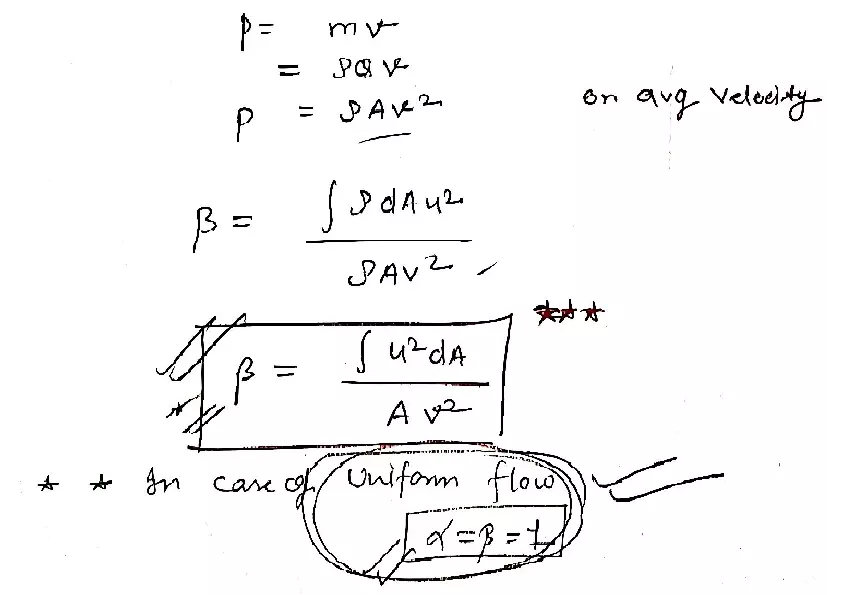 P = mv
= ρQv
P = ρAv² on avg velocity
β = ∫ρdAu² / ρAv²
β = ∫u²dA / Av²
In case of Uniform flow
α = β = 1